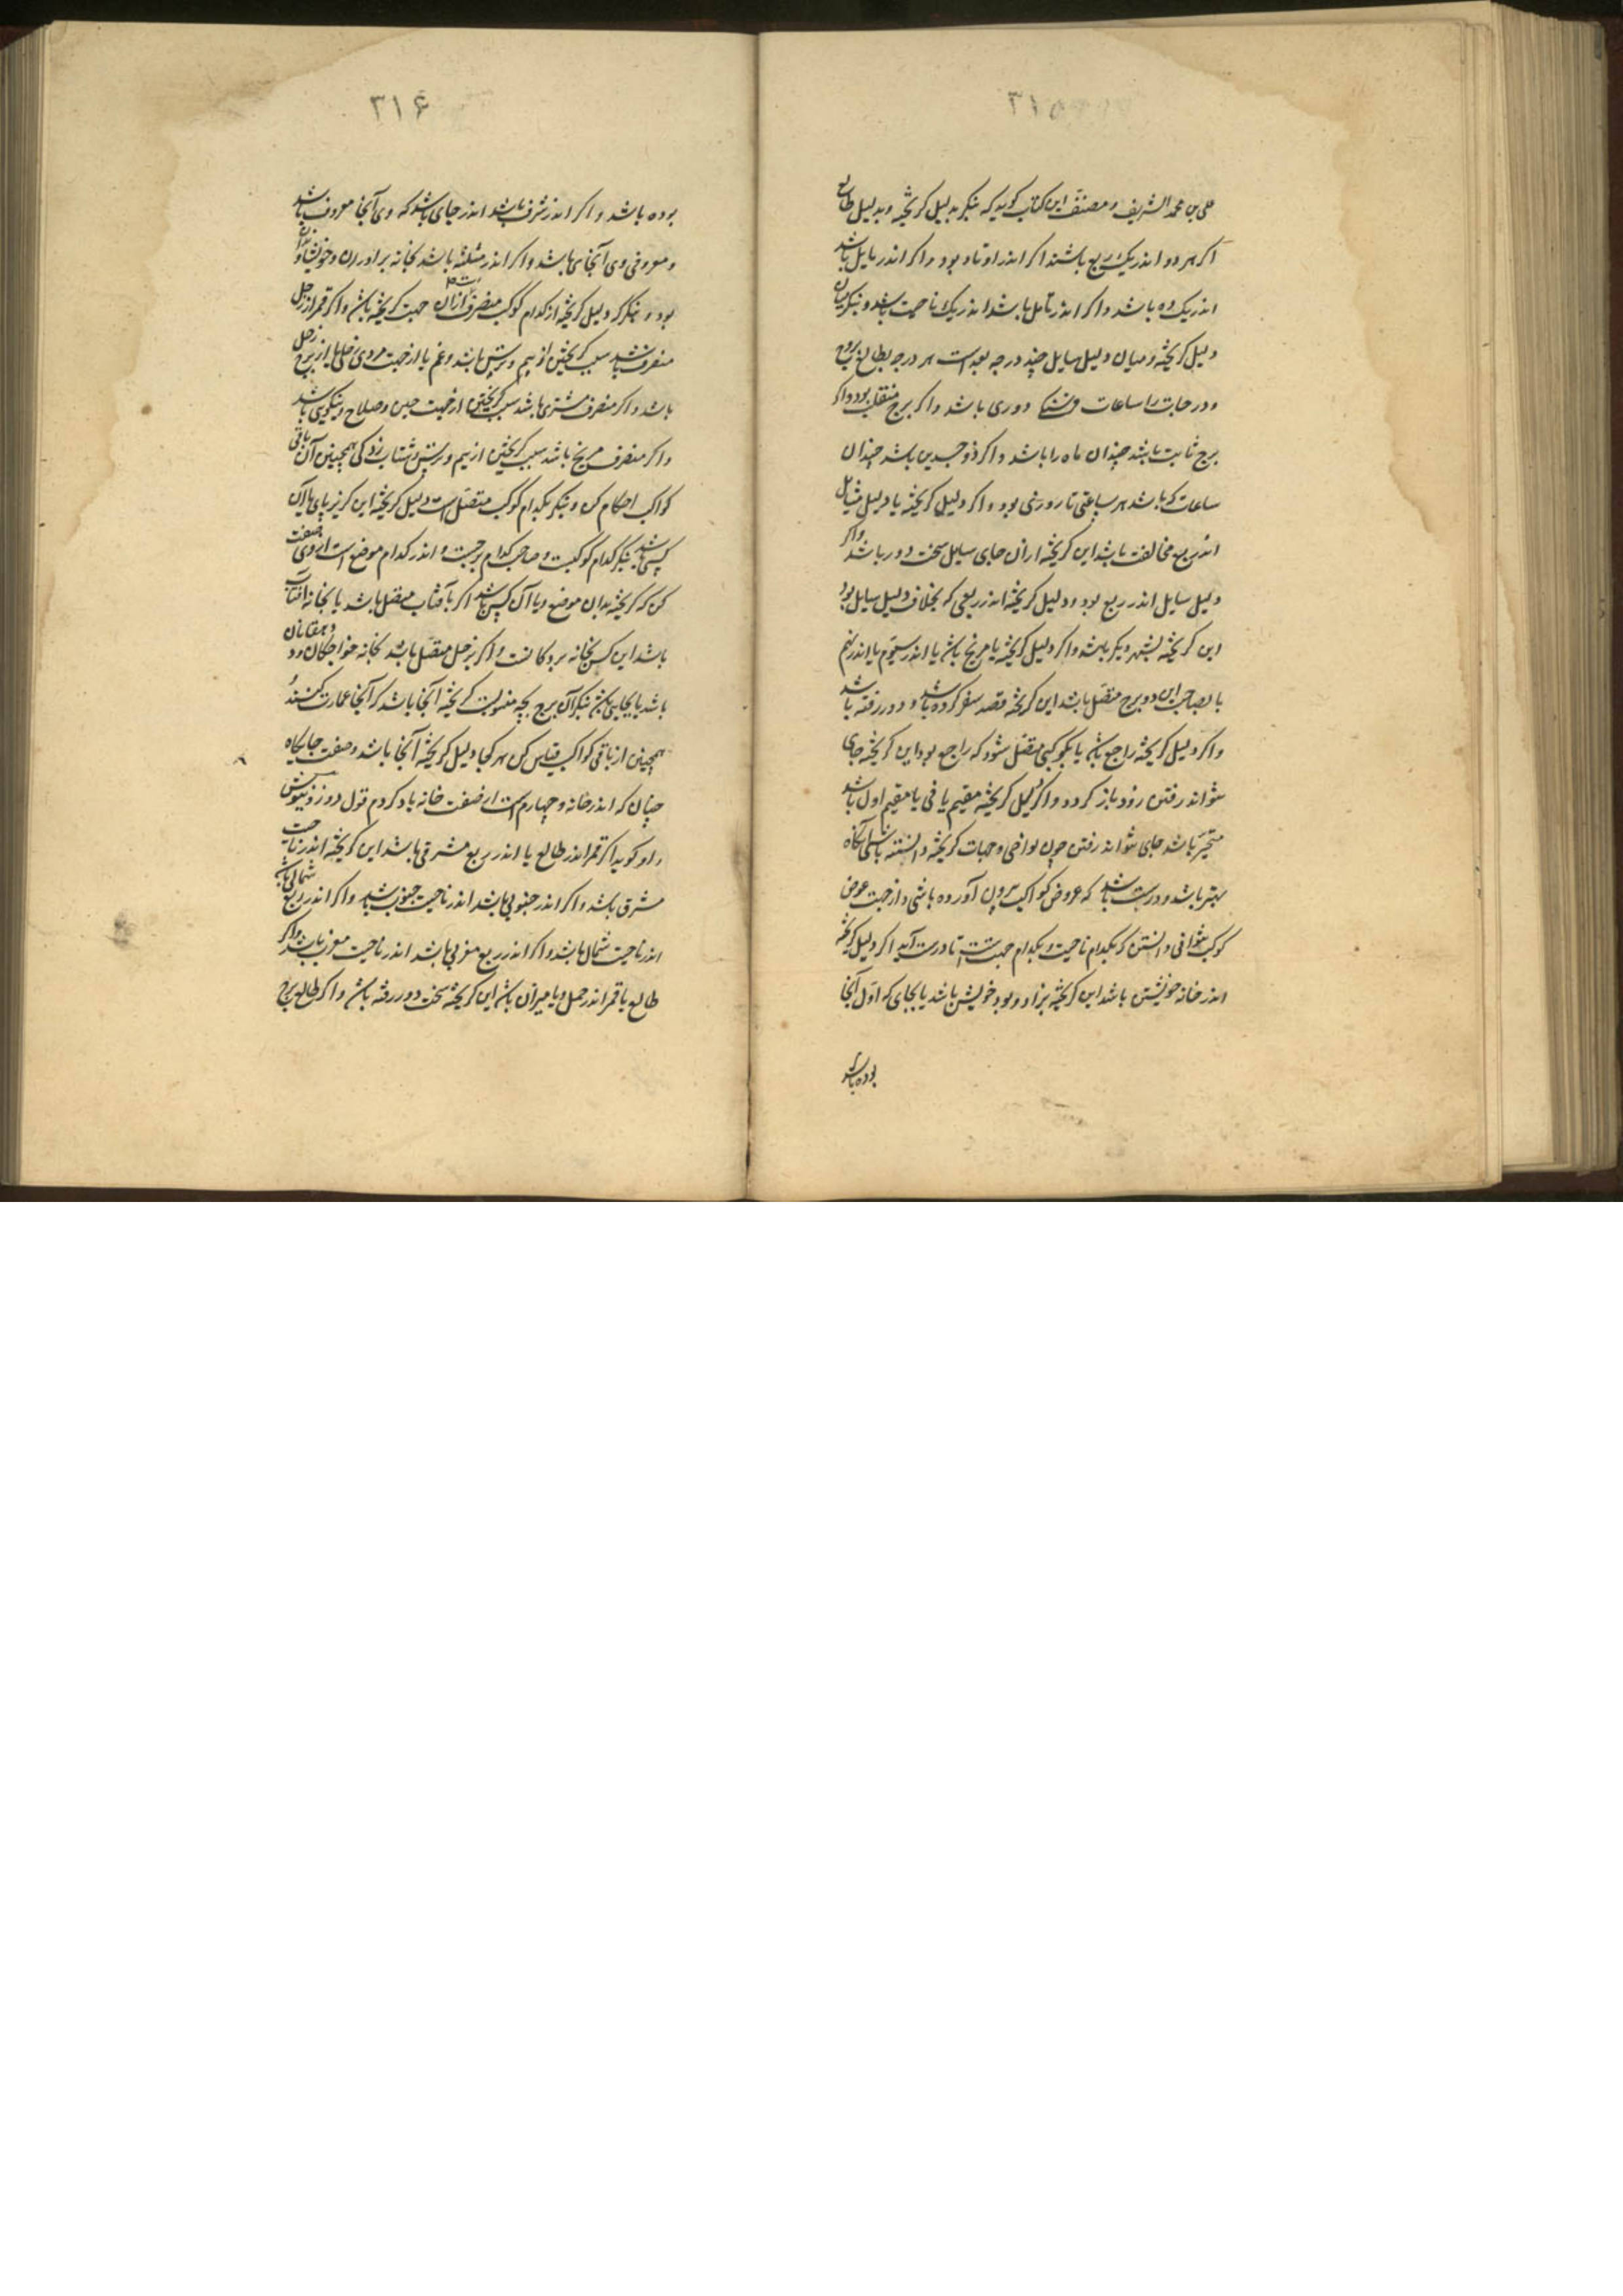 ۳۱۵
علی بن محمد الشریف و مصنف این کتاب کوید که بنکر بدلیل کریخته و بدلیل طالع
اکر هر دو اندر یک ربع باشند اکر اندر اوتاد بود و اکر اندر مایل باشد
اندر یک ده باشد و اکر اندر باشد اندر یک ناحیت باشد و بنکر میان
دلیل کریخته و میان دلیل سایل چند درجه بعد است هر درجه بطالع بروج
و درجات را ساعات دوری باشد و اکر برج منقلب بود و اکر
برج ثابت باشد چندان ماه را باشد و اکر ذو جسدین باشد چندان
ساعات که باشد هر ساعتی تا روزی بود و اکر دلیل کریخته یا دلیل سایل
اندر ربع مخالفت باشد این کریخته از ان جای سایل سخت دور باشد و اکر
دلیل سایل اندر ربع بود و دلیل کریخته اندر ربعی که بخلاف دلیل سایل بود
این کریخته بشهر دیکر باشد و اکر دلیل کریخته یا مریخ باشد یا اندر سیوم یا اندر نهم
یا بصاحب این دو برج متصل باشد این کریخته قصد سفر کرده باشد و دور رفته باشد
و اکر دلیل کریخته راجع باشد یا بکوکبی متصل شود که راجع بود این کریخته جای
نتواند رفتن زود باز کردد و اکر دلیل کریخته مقیم یافی یا مقیم اول باشد
متحیر باشد جای نتواند رفتن چون نواحی و جهات کریخته دانسته باشی آنکاه
بهتر باشد و درست باشد که عروض کواکب بیرون آورده باشی و از جهت عرض
کوکب بتوانی دانستن که بکدام ناحیت و بکدام جهتست تا درست آید اکر دلیل کریخته
اندر خانه خویشتن باشد این کریخته بزاد و بود خویش باشد یا بجای که اول آنجا
بوده باشد
۳۱۶
بوده باشد و اکر اندر شرف باشد اندر جای باشد که وی آنجا معروف باشد
و معروفی وی آنجای باشد و اکر اندر مثلثه باشد بخانه برادران و خویشاوندان
بود و بنکر که دلیل کریخته از کدام کوکب منصرف است از آن جهت کریخته باشد و اکر قمر از زحل
منصرف باشد سبب کریختن از بیم و ترس باشد و غم یا از جهت مردی زحلی یا از برج زحل
باشد و اکر منصرف مشتری باشد سبب کریختن از جهت دین و صلاح و نیکویی باشد
و اکر منصرف مریخ باشد سبب کریختن از بیم و ترس و شتاب زدکی همچنین آن باقی
کواکب احکام کن و بنکر بکدام کوکب متصل است دلیل کریخته این کریز پای با آن
کسی باشد بنکر کدام کوکبست و صاحب کدام برجست و اندر کدام موضع است از وی صفت
کن که کریخته بدان موضع و با آن کس باشد اکر بآفتاب متصل باشد یا بخانه آفتاب
باشد این کس بخانه بزرکانست و اکر بزحل متصل باشد بخانه خواجکان و دهقانان
باشد یا بجایی باشد بنکر آن برج بچه منسوبست کریخته آنجا باشد که آنجا عمارت کنند
همچنین از باقی کواکب قیاس کن هر کجا دلیل کریخته آنجا باشد و صفت جایکاه
چنان که اندر خانه و چهارم است از صفت خانه یاد کردم قول دوزوثیوش
و او کوید اکر قمر اندر طالع یا اندر ربع مشرقی باشد این کریخته اندر ناحیت
مشرق باشد و اکر اندر جنوبی باشد اندر ناحیت جنوب باشد و اکر اندر ربع شمالی باشد
اندر ناحیت شمال باشد و اکر اندر ربع مغربی باشد اندر ناحیت مغرب باشد و اکر
طالع یا قمر اندر حمل و یا میزان باشد این کریخته سخت دور رفته باشد و اکر طالع برج